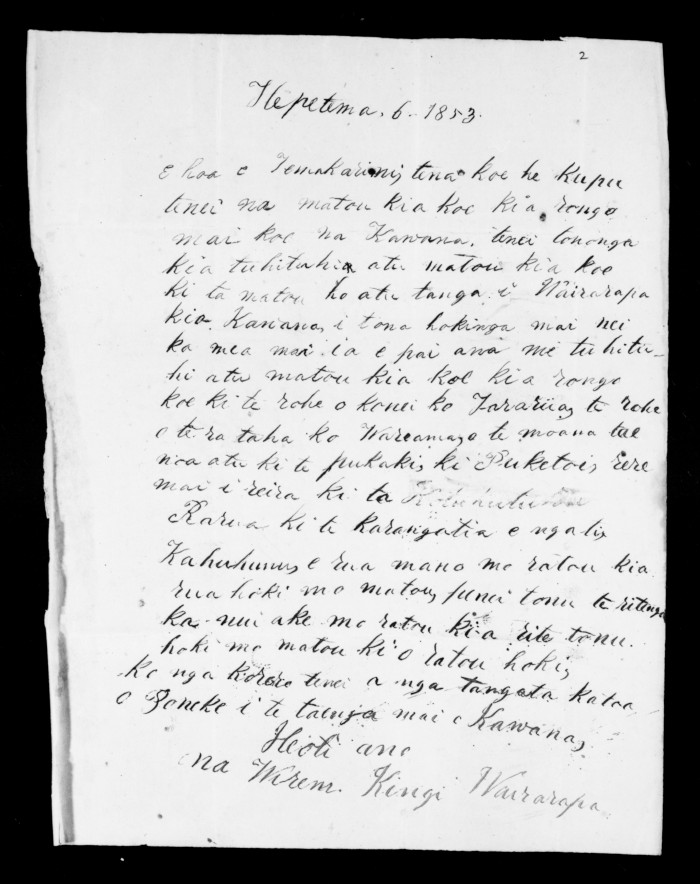 2
Hepetema. 6. 1853.
E hoa e Temakarini, tena koe he kupu
tenei na matou kia koe kia rongo
mai koe na Kawana. tenei tononga
kia tuhituhia atu matou kia koe
ki ta matou ho atu tanga i Wairarapa
kia Kawana, i tona hokinga mai nei
ka mea mai ia e pai ana me tuhitu-
hi atu matou kia koe kia rongo
koe ki te rohe o konei ko Tararua, te rohe
o tera taha ko Wareama, o te moana tae
noa atu ki te pukaki, ki Puketoi, rere
mai i reira ki ta
Rarua, ki te karangatia e ngati,
Kahuhunu, e rua mano mo ratou kia
rua hoki mo matou, penei tonu te ritenga
ka nui ake mo ratou kia rite tonu.
hoki mo matou ki o ratou hoki,
Ko nga korero tenei a nga tangata katoa
o Poneke i te taenga mai o Kawana,
Heoti ano
na Wirem. Kingi Wairarapa